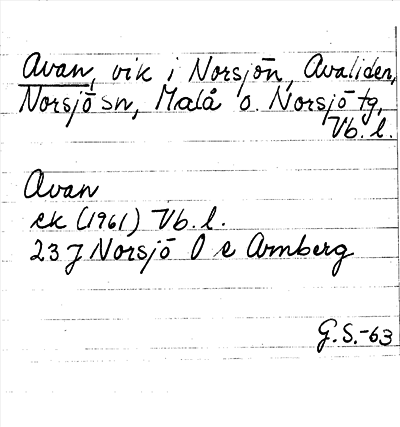 Avan, vik i Norsjön, Avaliden,
Norsjö sn, Malå o. Norsjö tg,
Vb. l.
Avan
ek (1961) Vb. l.
23 J Norsjö O e Armberg
G. S. -63